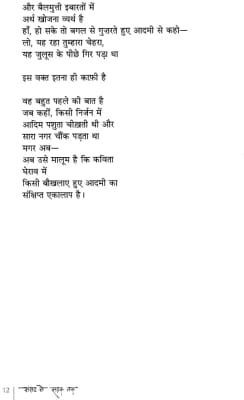 और बैलमुत्ती इबारतों में
अर्थ खोजना व्यर्थ है
हाँ, हो सके तो बगल से गुज़रते हुए आदमी से कहो—
लो, यह रहा तुम्हारा चेहरा,
यह जुलूस के पीछे गिर पड़ा था
इस वक्त इतना ही काफ़ी है
वह बहुत पहले की बात है
जब कहीं, किसी निर्जन में
आदिम पशुता चीख़ती थी और
सारा नगर चौंक पड़ता था
मगर अब—
अब उसे मालूम है कि कविता
घेराव में
किसी बौखलाए हुए आदमी का
संक्षिप्त एकालाप है।
12 संसद से सड़क तक